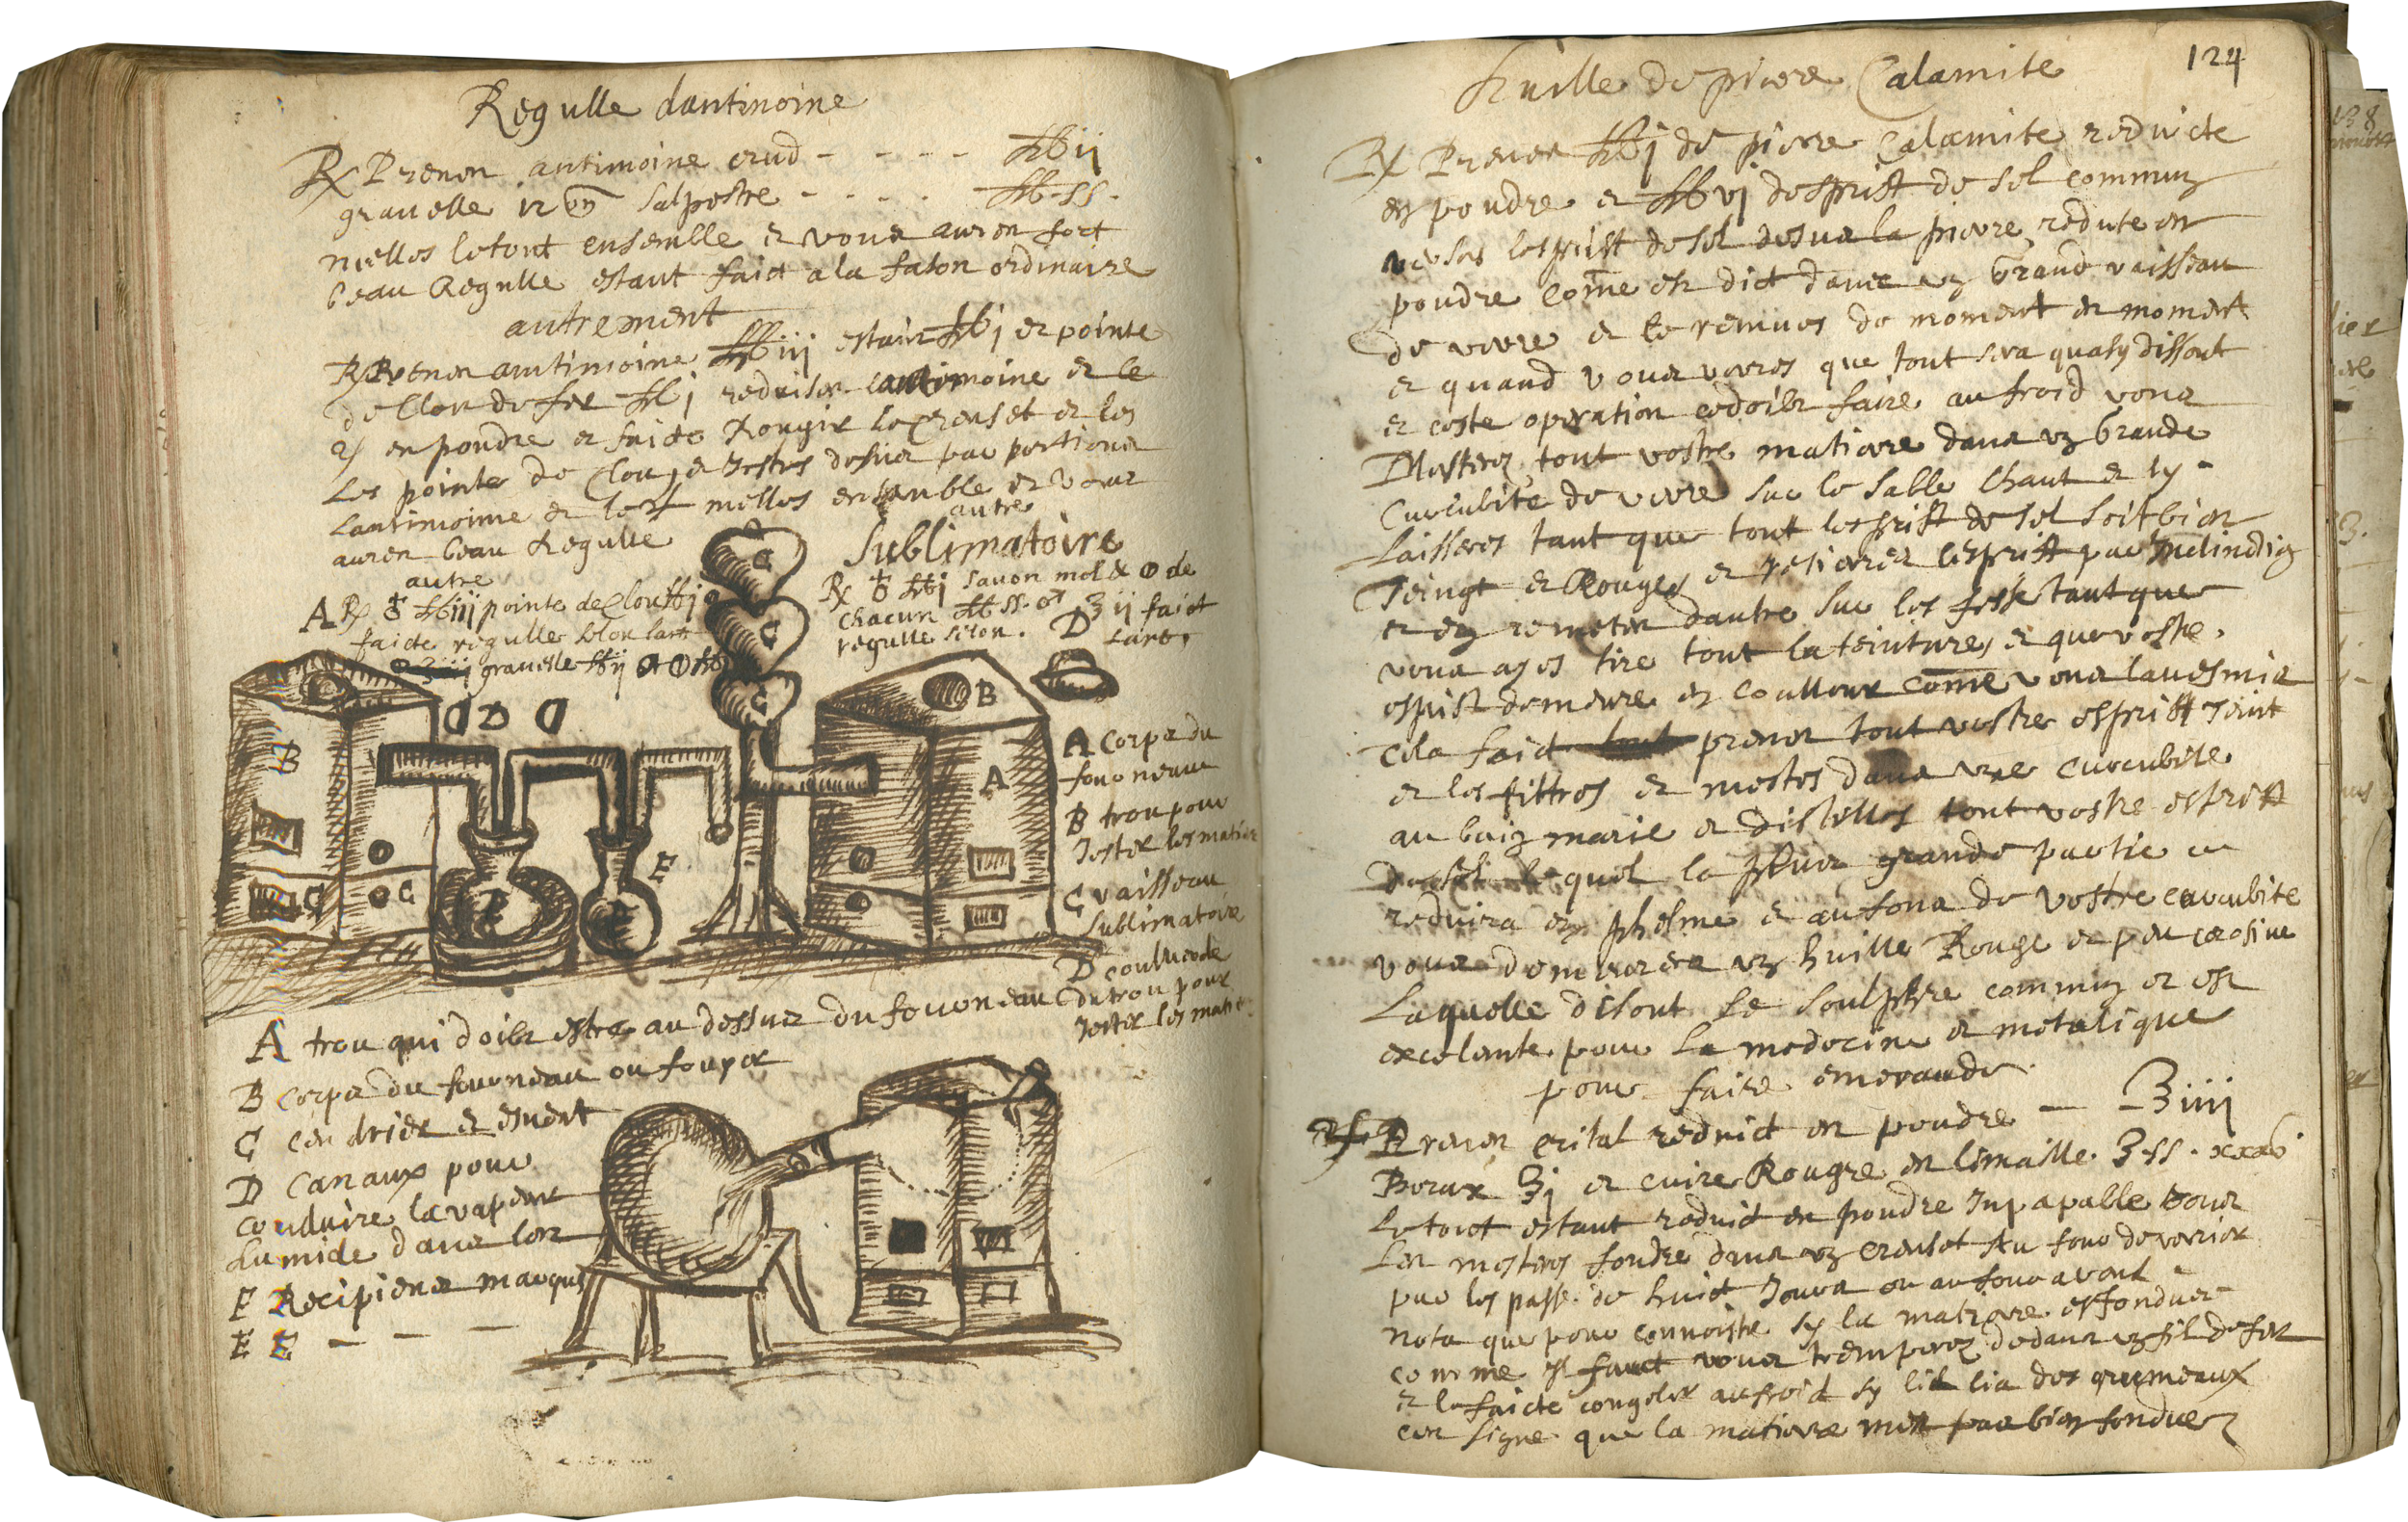 Regulle dantimoine
℞ Prenon antimoine crud - - - - ℔ ij
gravelle salpestre - - - - ℔ ss.
melles letout ensemble et vous auren fort
beau Regulle estant faict a la fason ordinaire
autrement
℞ Prenon antimoine ℔ iij estain ℔ j et pointe
de Clou de fer ℔ j reduisen lantimoine et le
♃ en poudre et faicte Rougir le Creuset et les
les pointe de Clou, et Jettes desus par portions
lantimoine et le ♃ melles ensemble et vous
auren beau Regulle
autre
A ℞ ♁ ℔ iij pointe de Clou ℔ j
faicte regulle selon lart
gravelle ℔ ij
autre
Sublimatoire
℞ ♁ ℔ j savon mol & de
chacun ℔ ss. ʒ ij faict
regulle selon. lart.
C
C
C
D D D
B
B
A
C C
E
A Corps du
fourneau
B trou pour
Jetter les matiere
C vaisseau
Sublimatoire
D coulvercle
du trou pour
Jetter les mat
A trou qui doibt estre au dessus du fourneau
B Corps du fourneau ou fouyer
C Cendrier et esvent
D Canaux pour
conduire la vapeur
humide dans les
E Recipiens marqués
E E — — —
124
huille de pierre Calamite
℞ Prenon ℔ j de pierre Calamite reduicte
en poudre et ℔ vj desprist de sel commun
verses lesprist de sel desus la pierre redute en
poudre Come est dict dans un Grand vaisseau
de verre et le remues de moment en moment
et quand vous veres que tout sera quasy dissout
et ceste operation cedoibt faire au froid vous
Mesteres tout vostre matiere dans un Grande
Cucubite de verre sur le sable Chaut et ly
Laisseres tant que tout lesprist de sel soit bien
Teingt et Rouges et retireres lesprist par Inclination
et en remeter dautre sur les fesse tant que
vous ayes tire tout la teinture et que vostre
esprist demeure en coulleur Come vous lavesmis
Cela faict prener tout vostre esprist Teint
et les filtres et mestes dans une Cucubite
au bain marie et distilles tout vostre esprist
de sel lequel la plus grande partie ce
reduira en phelme et au fons de vostre cucubite
vous demeurera un huille Rouge et peu corosive
Laquelle disout le soulphre commun et est
excelente pour la medecine et metalique
pour faire emeraude
℞ Prenon cristal reduict en poudre — ℥ iiii
Borax ℥ j et cuivre Rougre en limaille ℥ ss.
le tout estant reduict en poudre Inpapalle vous
Les mesteres fondre dans un creuset au four de verrier
par les passe de huict Jours ou au four avant
nota que pour connoistre sy la matiere est fondue
comme Il faut vous tremperez dedans un fil de fer
et le faicte congeler au froid sy lil lia des grumeaux
cen signe que la matiere nest pas bien fondue